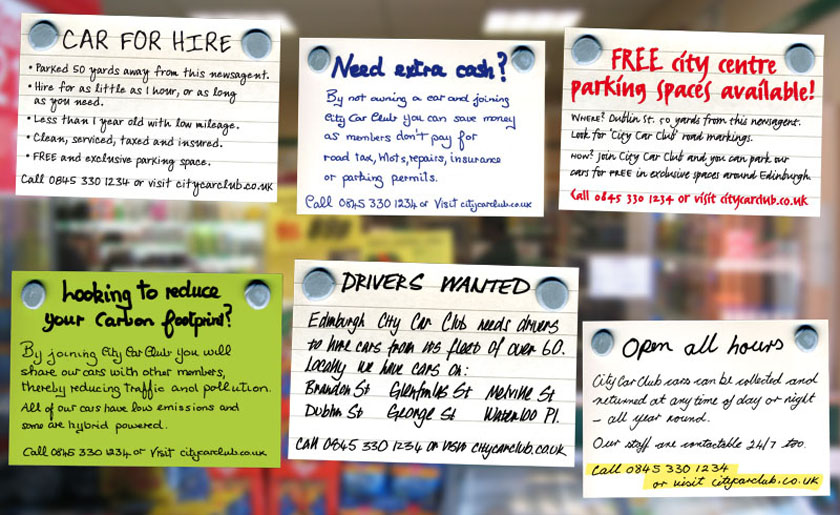 CAR FOR HIRE
• Parked 50 yards away from this newsagent.
• Hire for as little as 1 hour, or as long
as you need.
• Less than 1 year old with low mileage.
• Clean, serviced, taxed and insured.
• FREE and exclusive parking space.
Call 0845 330 1234 or visit citycarclub.co.uk
Need extra cash?
By not owning a car and joining
City Car Club you can save money
as members don't pay for
road tax, MOTs, repairs, insurance
or parking permits.
Call 0845 330 1234 or Visit citycarclub.co.uk
FREE city centre
parking spaces available!
WHERE? Dublin St. 50 yards from this newsagent.
Look for 'City Car Club' road markings.
HOW? Join City Car Club and you can park our
cars for FREE in exclusive spaces around Edinburgh.
Call 0845 330 1234 or visit citycarclub.co.uk
Looking to reduce
your Carbon footprint?
By joining City Car Club you will
share our cars with other members,
thereby reducing traffic and pollution.
All of our cars have low emissions and
some are hybrid powered.
Call 0845 330 1234 or Visit citycarclub.co.uk
DRIVERS WANTED
Edinburgh City Car Club needs drivers
to hire cars from its fleet of over 60.
Locally we have cars on:
Brandon St Glenfinlas St Melville St
Dublin St George St Waterloo Pl.
Call 0845 330 1234 or visit citycarclub.co.uk
Open all hours
City Car Club cars can be collected and
returned at any time of day or night
– all year round.
Our staff are contactable 24/7 too.
Call 0845 330 1234
or visit citycarclub.co.uk